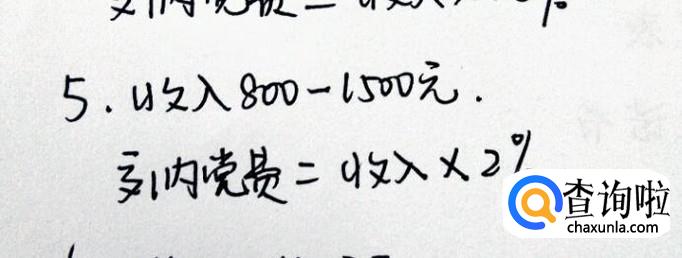 党费 = 收入
5. 收入800-1500元.
交纳党费 = 收入×2%
查询啦
chaxunla.com